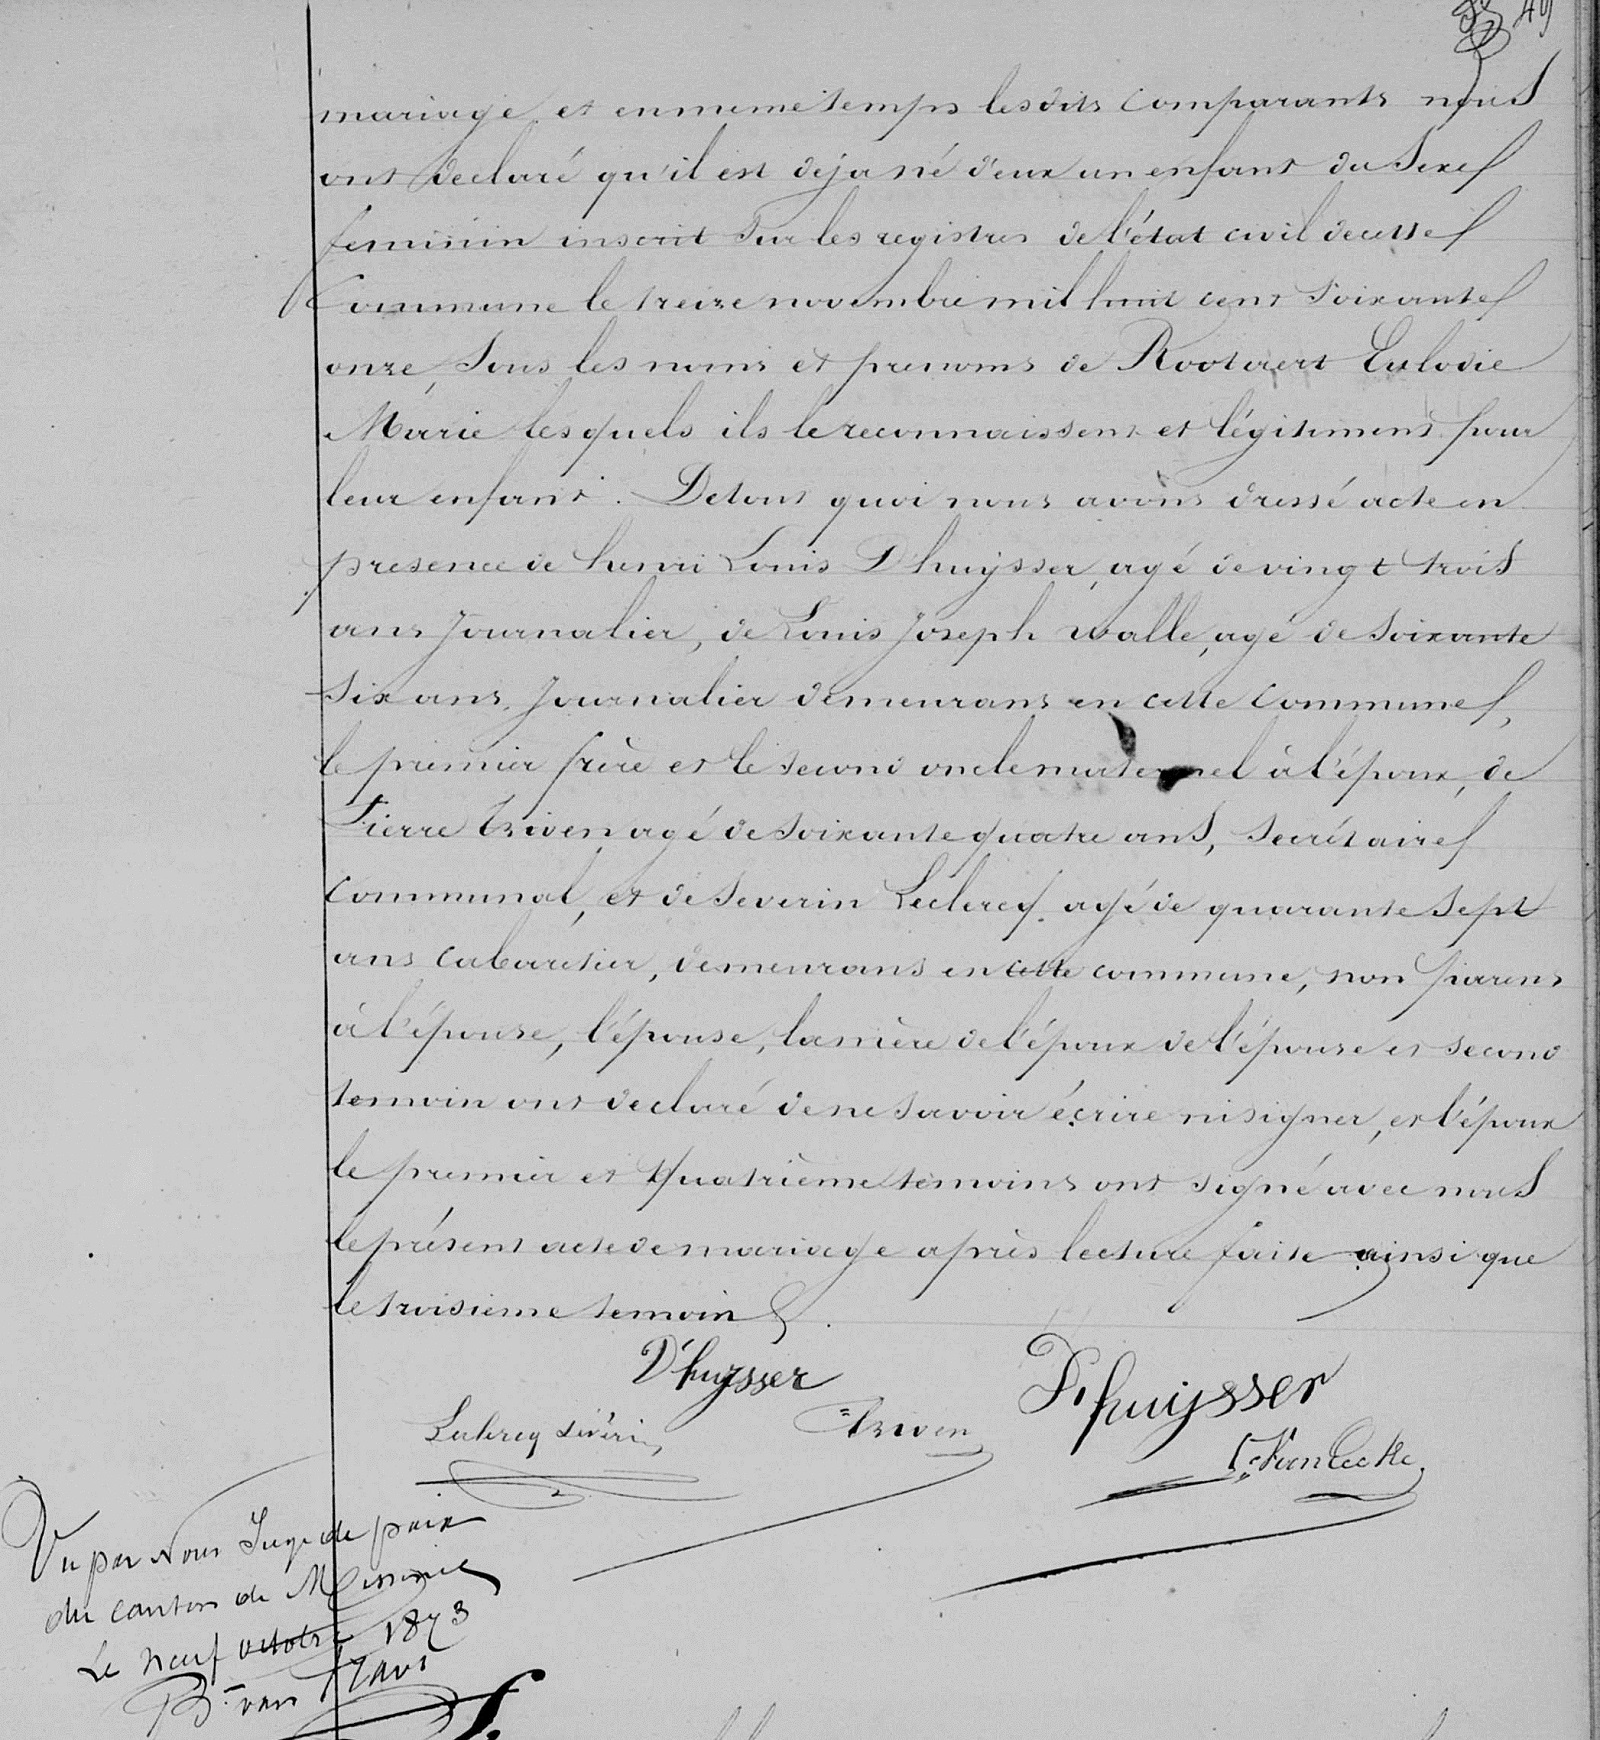 49
mariage, et en meme temps les dits comparants nous
ont declaré qu'il est deja né d'eux un enfant du Sexe
feminin inscrit sur les registres de l'état civil de cette
Commune le treize novembre mil huit cent soixante
onze, sous les noms et prenoms de Rootaert Eulodie
Marie lesquels ils le reconnaissent et légitiment pour
leur enfant. De tout quoi nous avons dressé acte en
presence de henri Louis D'huysser, agé de vingt trois
ans Journalier, de Louis Joseph walle, agé de soixante
six ans, Journalier demeurans en cette Commune,
le premier frère et le second oncle maternel à l'époux, de
Pierre Criven agé de soixante quatre ans, secrétaire
Communal, et de Severin Leclercq agé de quarante sept
ans cabaretier, demeurans en cette commune, non parens
à l'épouse, l'épouse, la mère de l'époux de l'épouse et second
temoin ont declaré de ne savoir écrire ni signer, et l'époux
le premier et quatrième temoins ont signé avec nous
le présent acte de mariage après lecture faite ainsi que
le troisième temoin
D'huysser
D'huysser
Leclercq Séverin
Criven
Vu par Nous Juge de paix
du canton de Messines
Le neuf octobre 1873